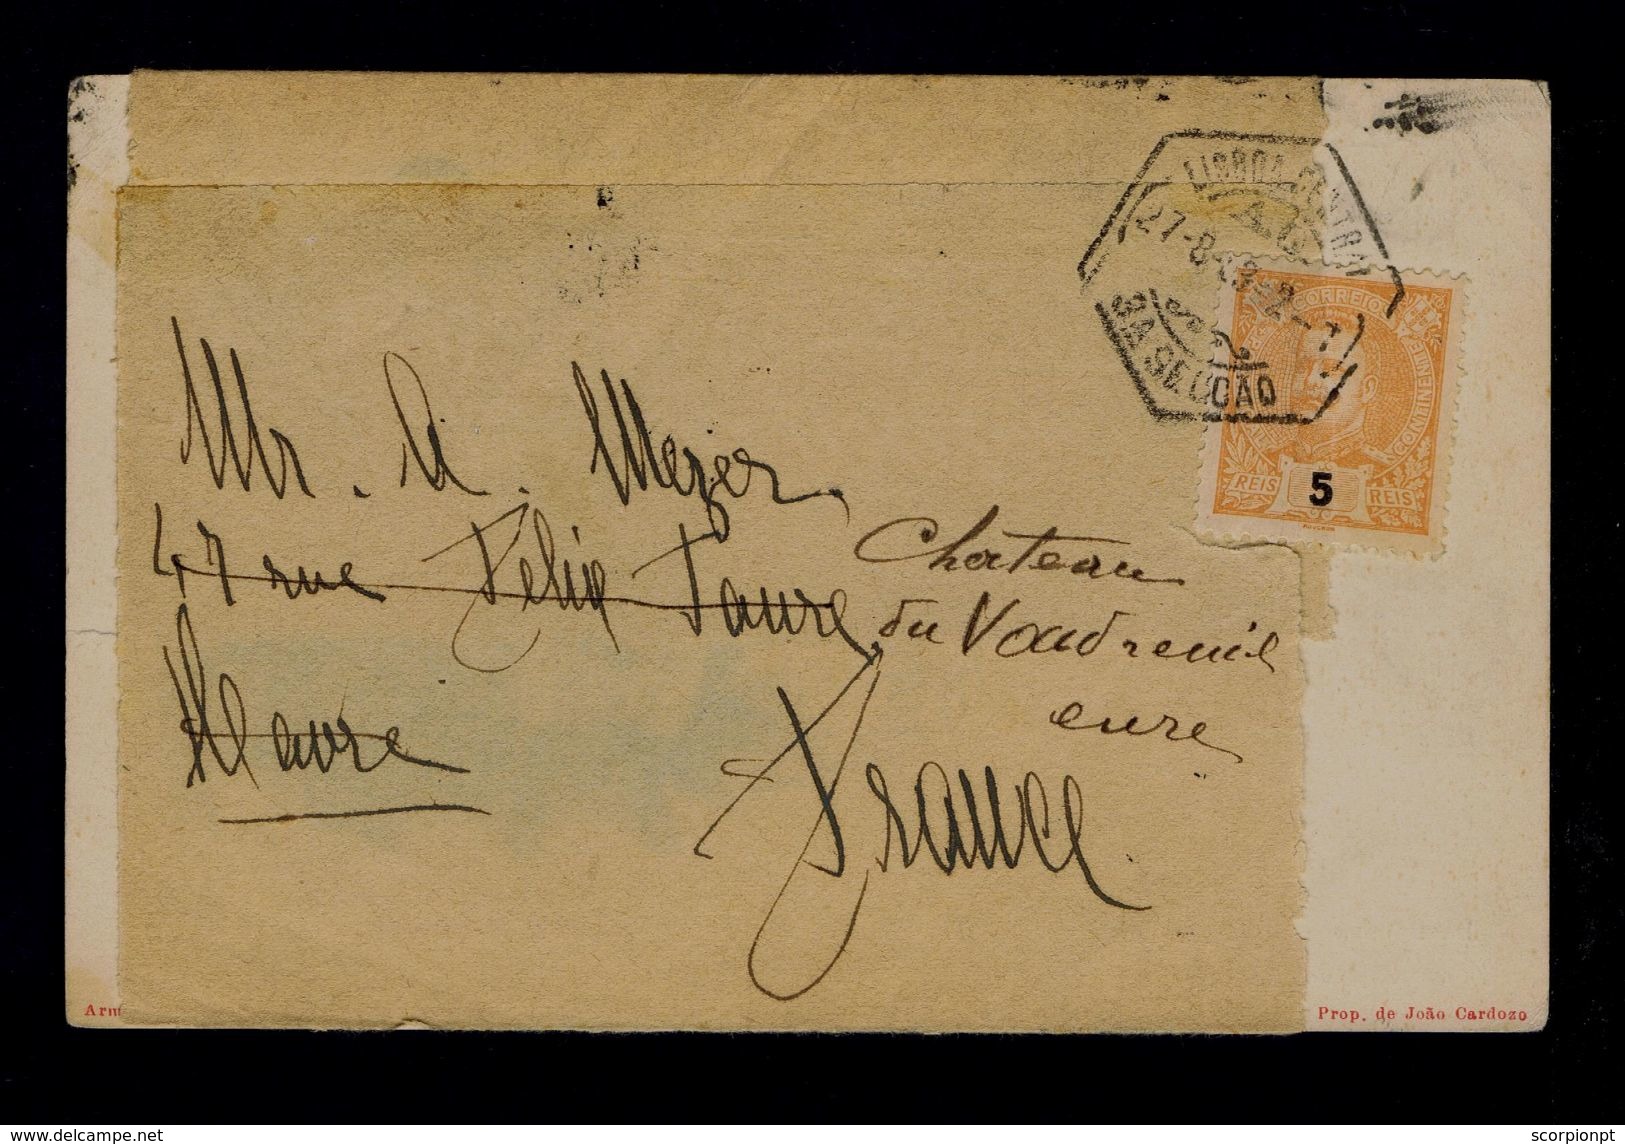 LISBOA CENTRAL
27-8-
3A SECÇÃO
CORREIOS
CONTINENTE
REIS 5 REIS
Mr. A. Meyer.
47 rue Félix Faure,
Havre
Chateau
du Vaudreuil
eure
France
Prop. de João Cardozo
scorpionpt